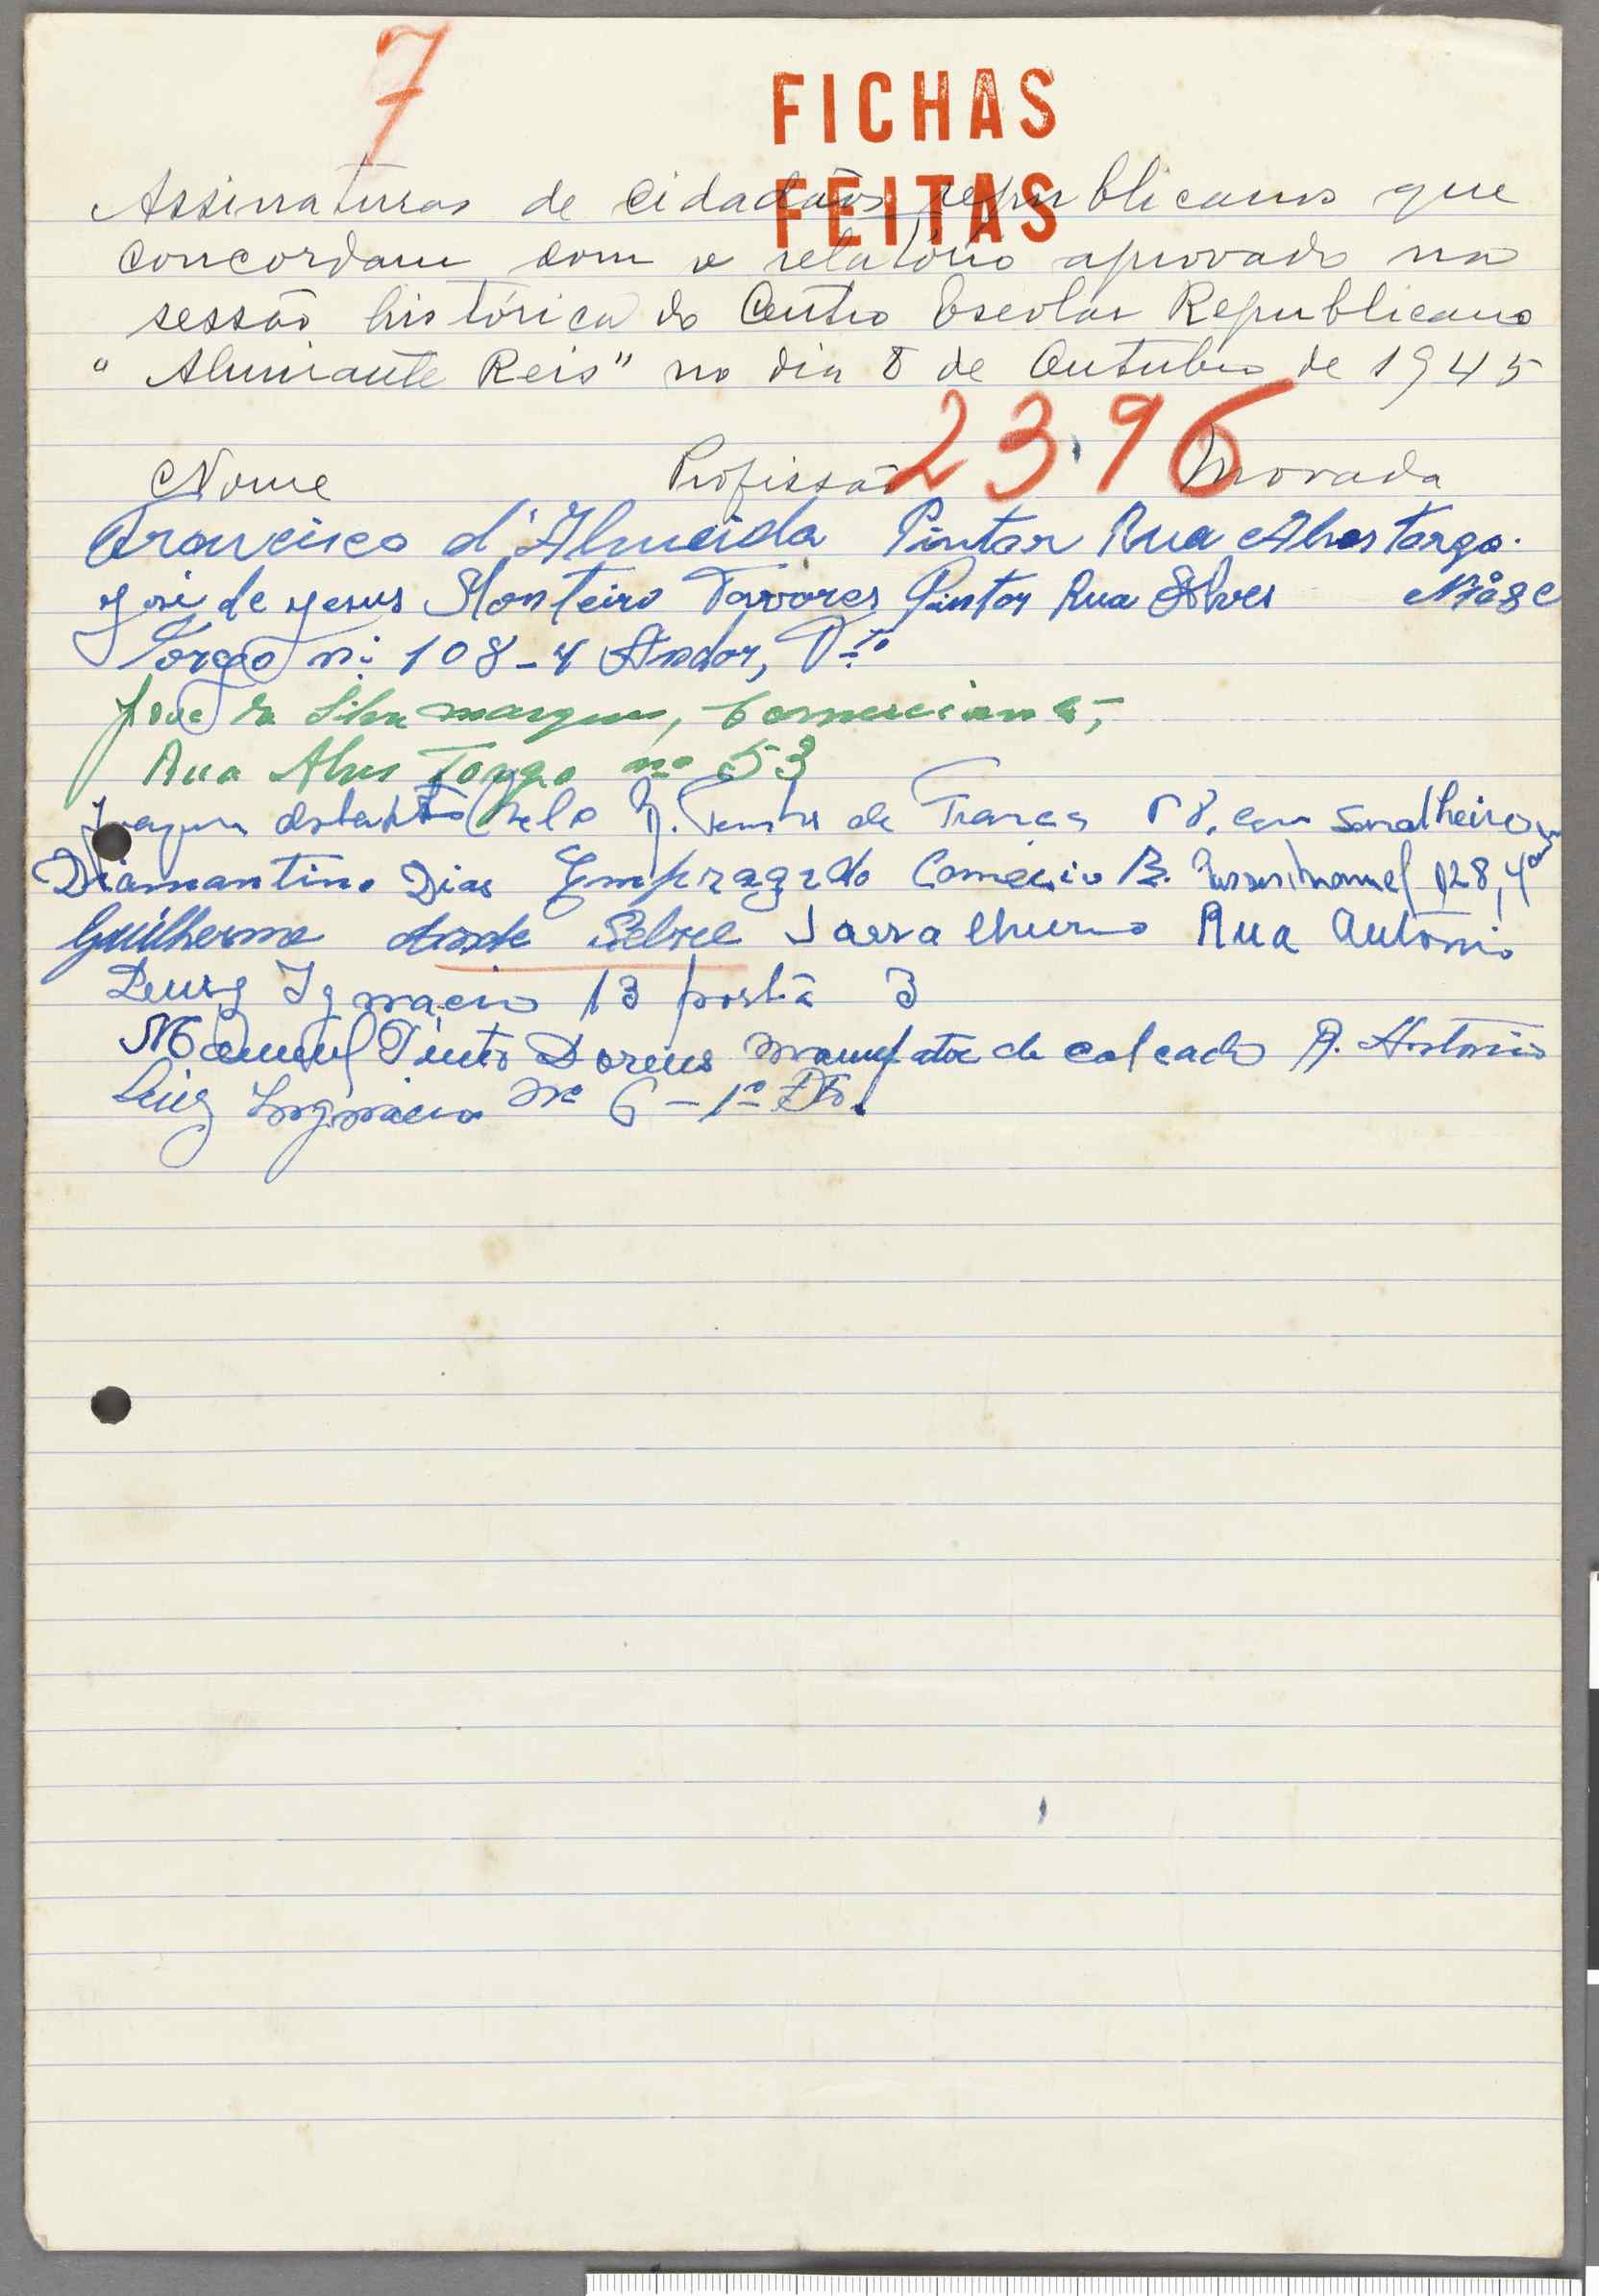 7
FICHAS
FEITAS
Assinaturas de cidadãos republicanos que
concordam com o relatório aprovado na
sessão histórica do Centro Escolar Republicano
"Almirante Reis" no dia 8 de Outubro de 1945
23.96
Nome Profissão Morada
Francisco d'Almeida Pintor Rua Alves Torgo.
José de Jesus Monteiro Tavares Pintor Rua Alves
Torgo n: 108-4 Andor, Dto
José da Silva marques, Comerciante,
Rua Alves Torgo no 53
Joaquim Melo
Diamantino Dias Empragado Comércio R. 128, 4º
Guilherme Serralhuro Rua António
Luis Ignacio 13 porta 3
Manuel Pinto manufator de calcado R. Antonio
Luiz Ingnacio no 6-1º Dto.